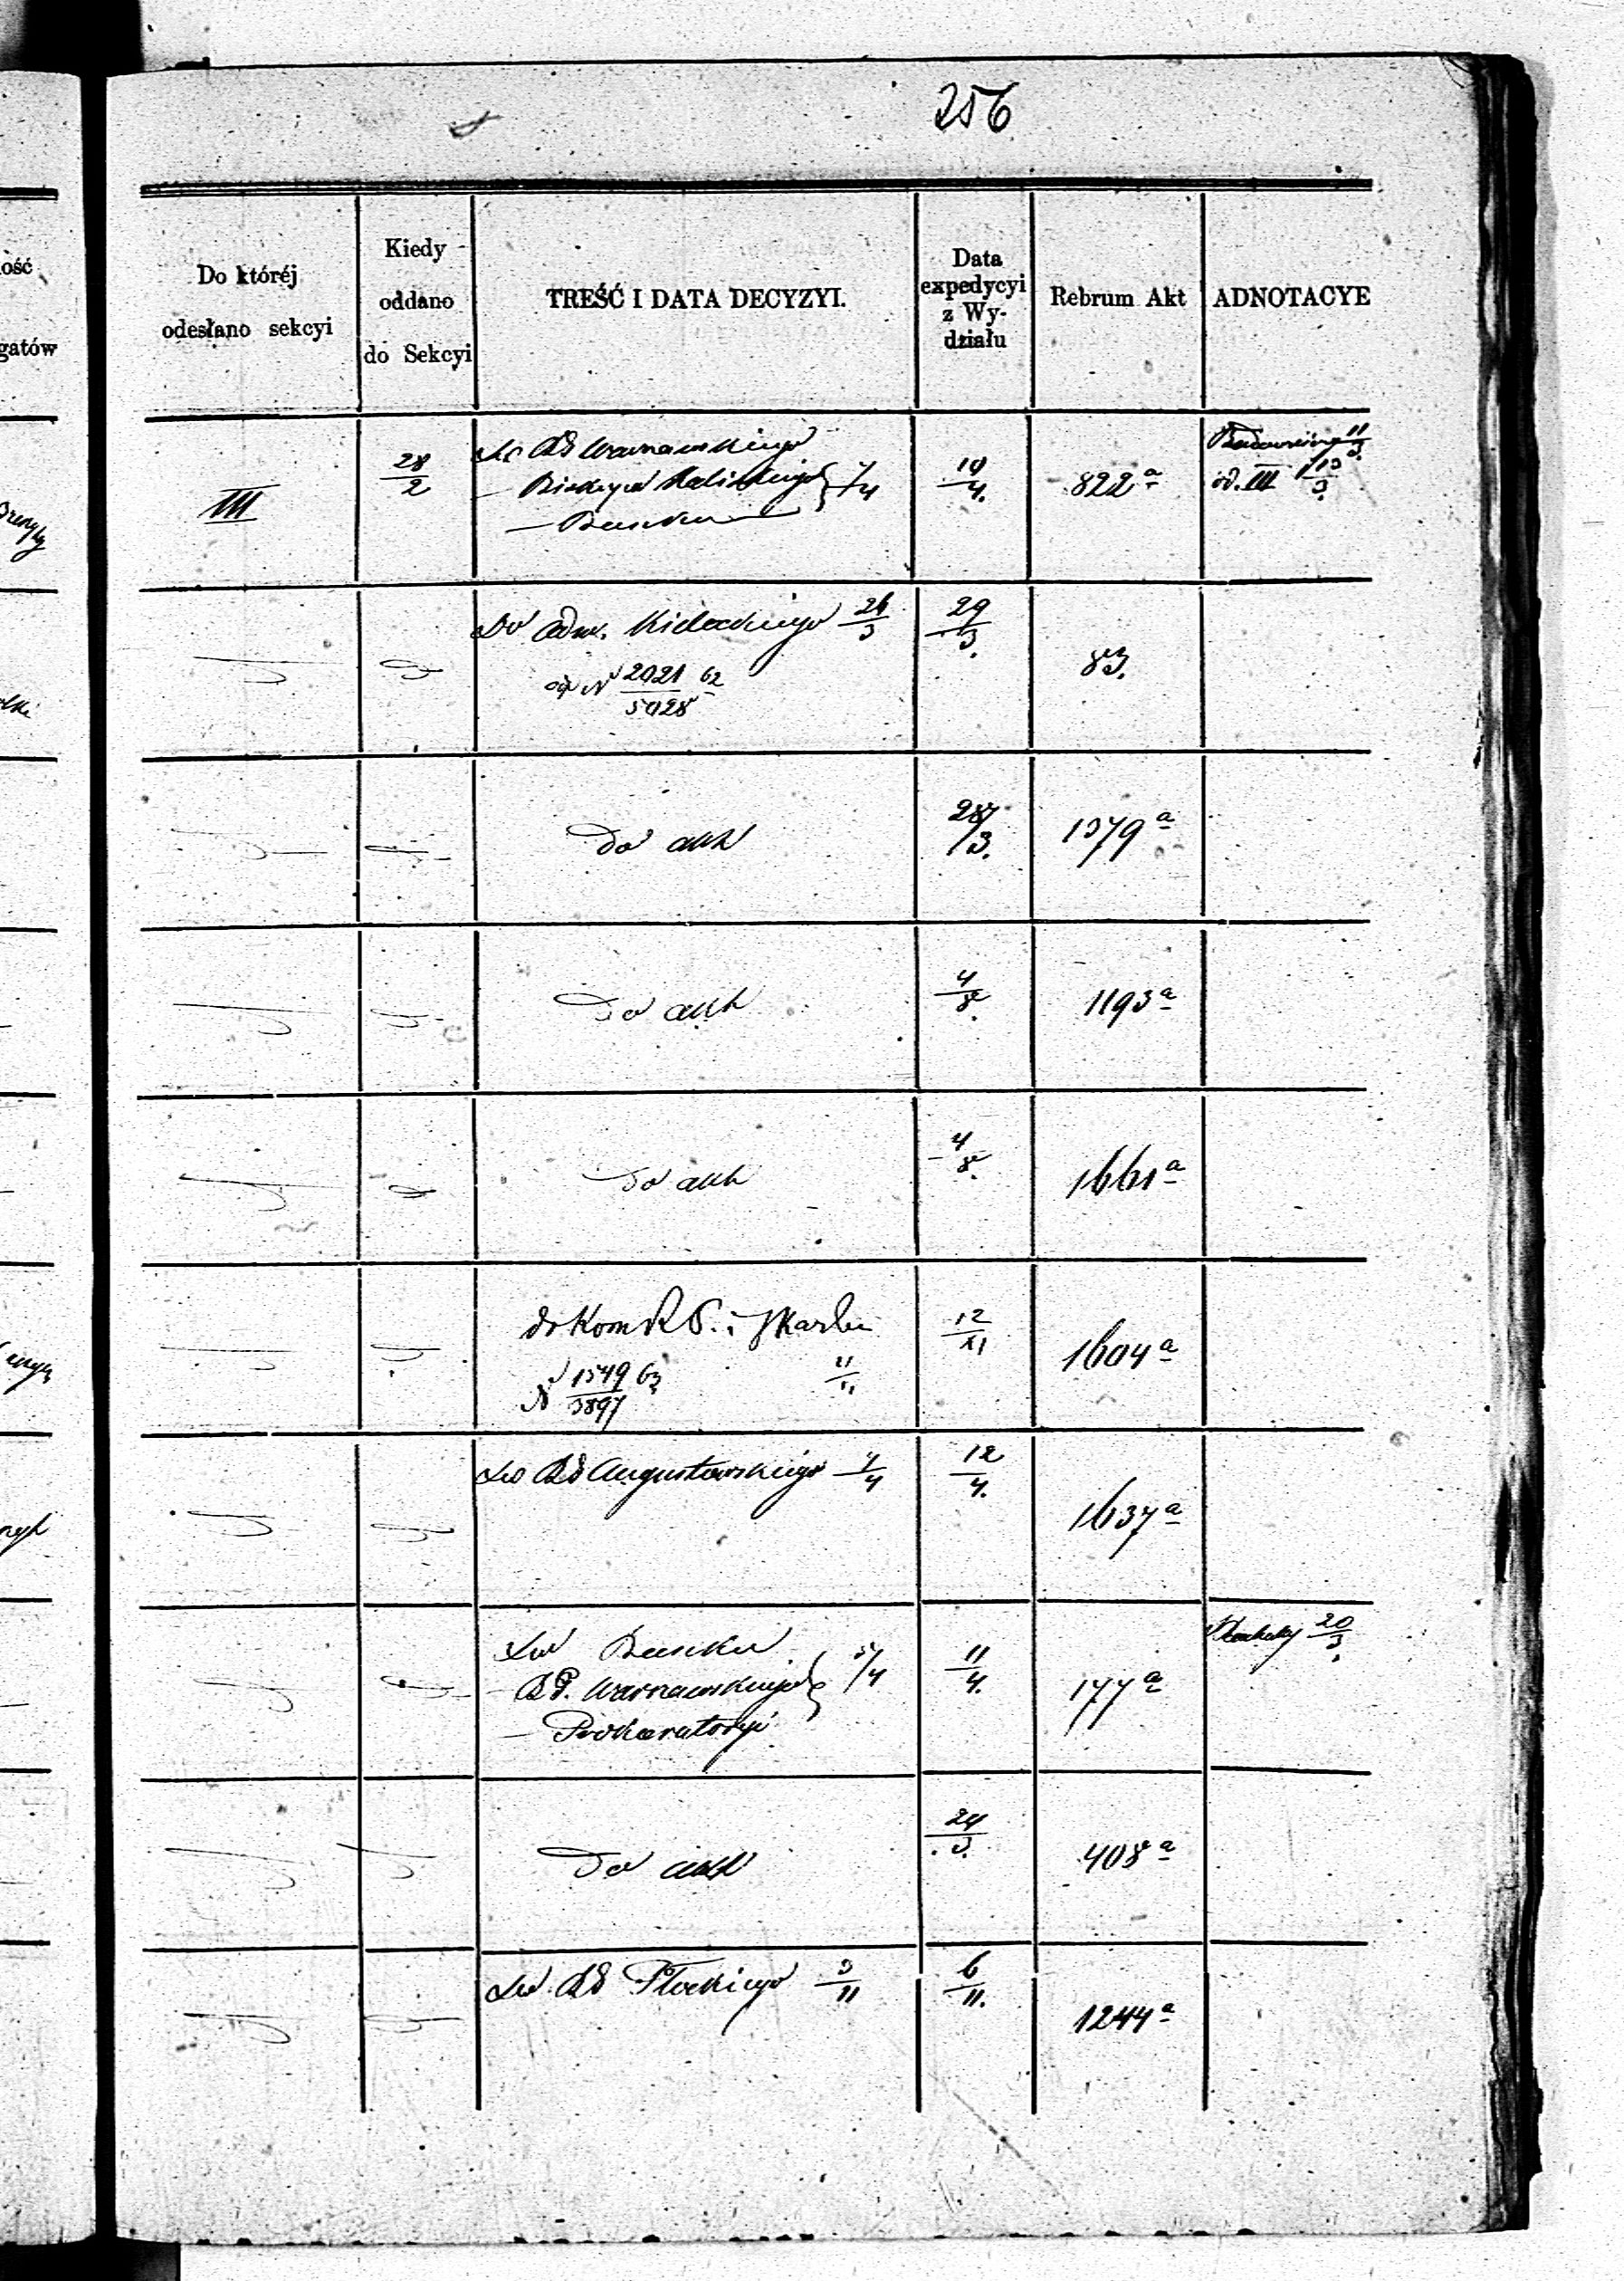 256
ość
gatów
Do któréj
odesłano sekcyi
Kiedy
oddano
do Sekcyi
TREŚĆ I DATA DECYZYI.
Data
expedycyi
z Wy-
działu
Rebrum Akt
ADNOTACYE
III
28/2
Do RG Warszawskiego
Biskupa Kaliskiego 7/4
— Banku —
10/4.
822 a
11/3
od. III 13/3.
Do Adm. Kieleckiego 26/3
N 2021/5028 62
29/3.
83.
Do akt
28/3.
1379 a
Do akt
4/8.
1193 a
Do akt
4/8.
1661 a
do Kom R P. i Skarbu
N 1549/3897 63
11/11
12/XI
1604 a
Do RG Augustowskiego 4/4
12/4.
1637 a
Do Banku
RG. Warszawskiego 5/4
— Prokuratoryi
11/4.
177 a
20/3.
Do akt
24/3.
408 a
Do RG Płockiego 3/11
6/11.
1244 a